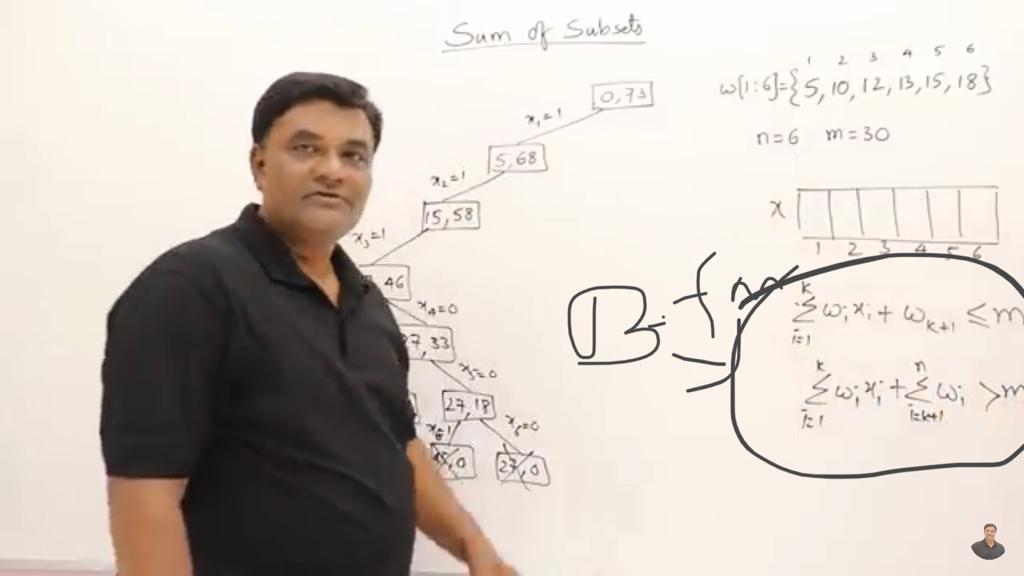 Sum of Subsets
0,73
x₁=1
5,68
x₂=1
15,58
x₃=1
46
x₄=0
27,33
x₅=0
27,18
x₆=1
x₆=0
,0
27,0
1 2 3 4 5 6
w[1:6]={5,10,12,13,15,18}
n=6 m=30
x
1 2 3 4 5 6
B.fnn
k
Σ wᵢxᵢ + wₖ₊₁ ≤ m
i=1
k n
Σ wᵢxᵢ + Σ wᵢ > m
i=1 i=k+1